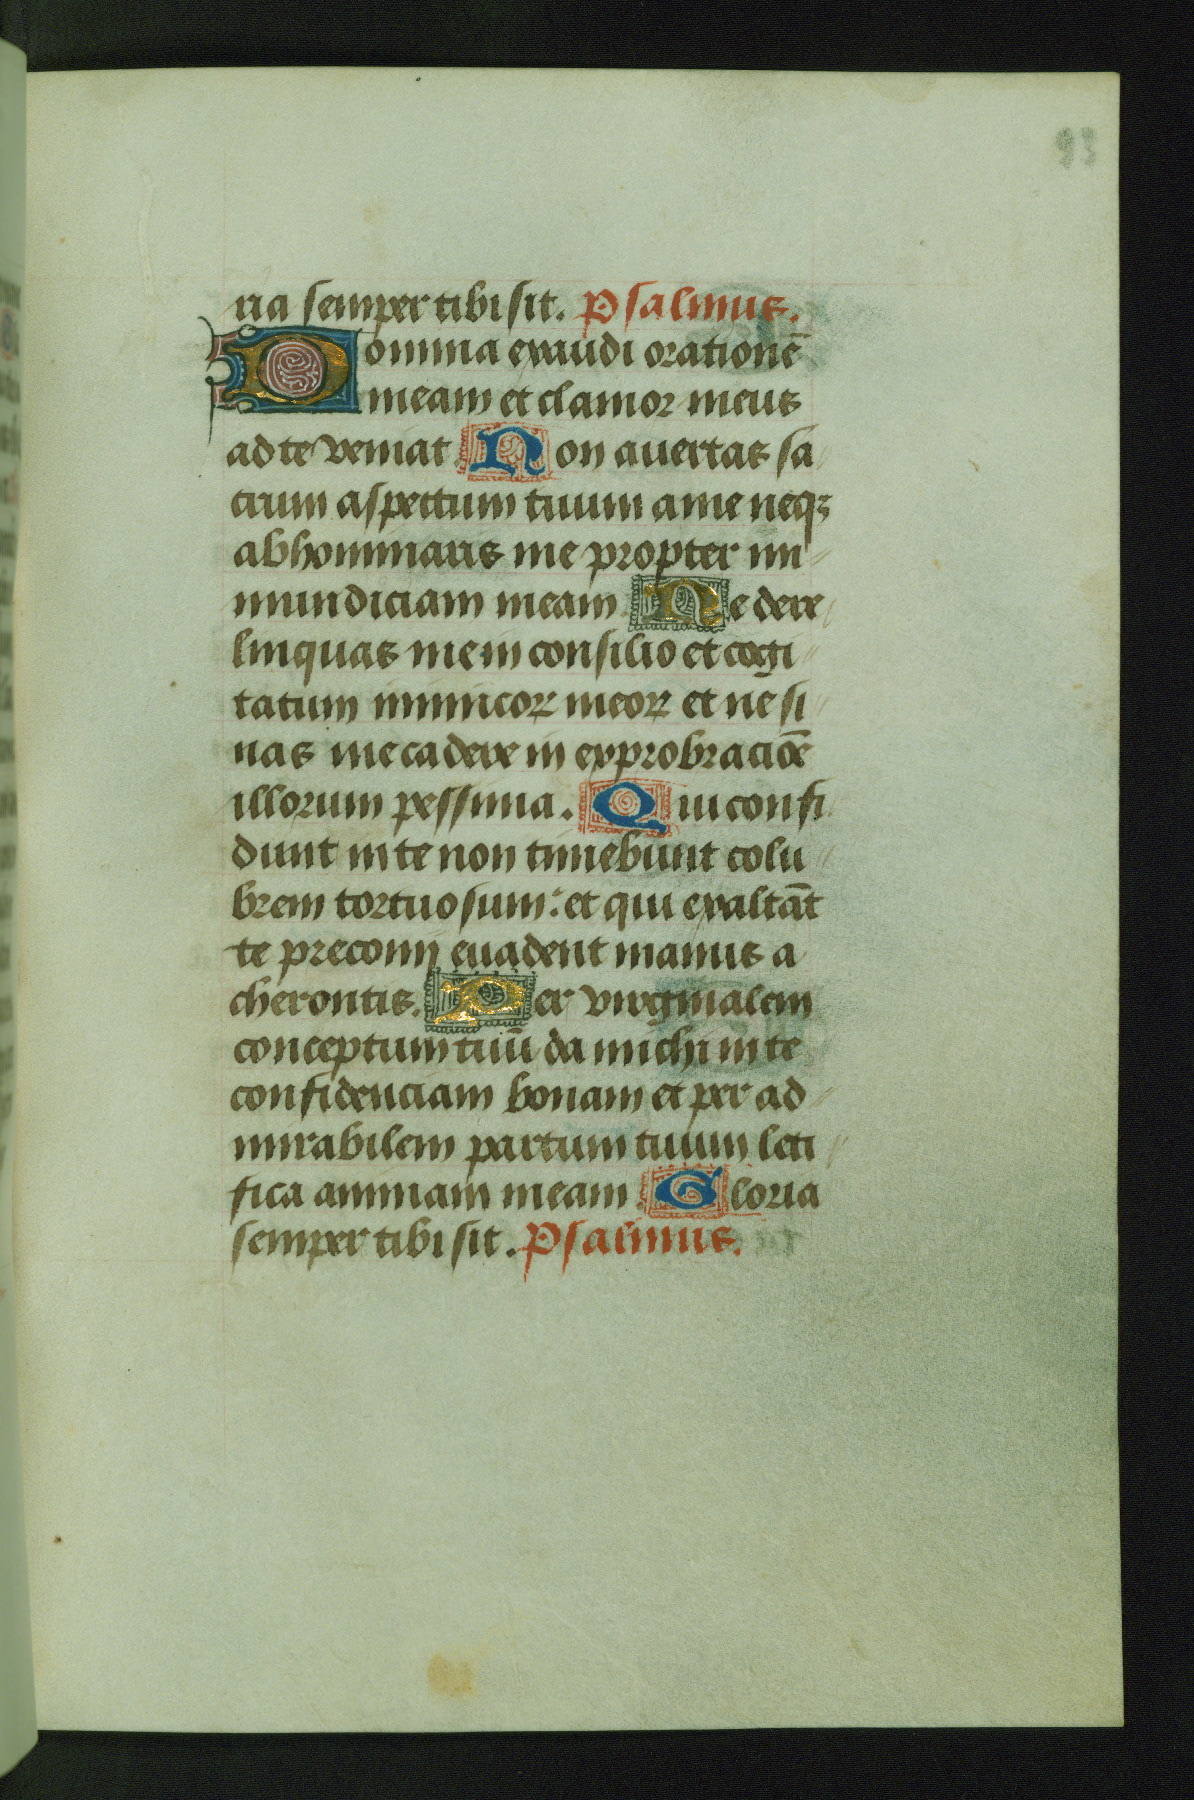 93
ria semper tibi sit. Psalmus.
Domina exaudi orationē
meam et clamor meus
ad te veniat. Non avertas sa
crum aspectum tuum a me neqꝫ
abhominaris me propter im
mundiciam meam. Ne dere
linquas me in consilio et cogi
tatum inimicoꝝ meoꝝ et ne si
nas me cadere in exprobraciōe
illorum pessima. Qui confi
dunt in te non timebunt colu
brem tortuosum: et qui exaltāt
te preconij evadent manus a
cherontis. Per virginalem
conceptum tuū da michi in te
confidenciam bonam et per ad
mirabilem partum tuum leti
fica animam meam. Gloria
semper tibi sit. Psalmus.